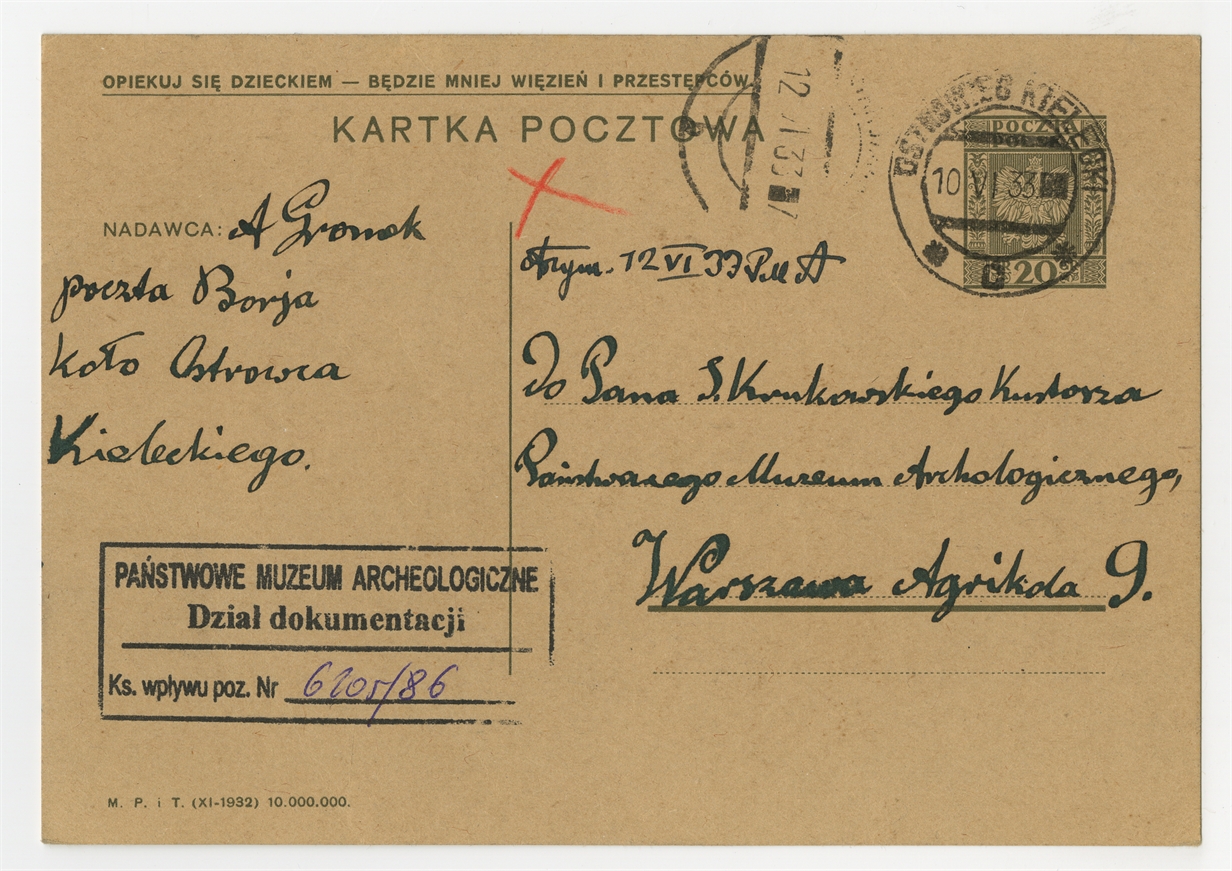 OPIEKUJ SIĘ DZIECKIEM — BĘDZIE MNIEJ WIĘZIEŃ I PRZESTĘPCÓW.
KARTKA POCZTOWA
12 VI 33
OSTROWIEC KIELECKI
10 VI 33
C
POCZTA
POLSKA
20
NADAWCA: A Gronek
poczta Borja
koło Ostrowca
Kieleckiego.
Otrzym. 12 VI 33 P M A
Do Pana S. Krukowskiego Kustosza
Państwowego Muzeum Archologicznego,
Warszawa Agrikola 9.
PAŃSTWOWE MUZEUM ARCHEOLOGICZNE
Dział dokumentacji
Ks. wpływu poz. Nr
M. P. i T. (XI-1932) 10.000.000.